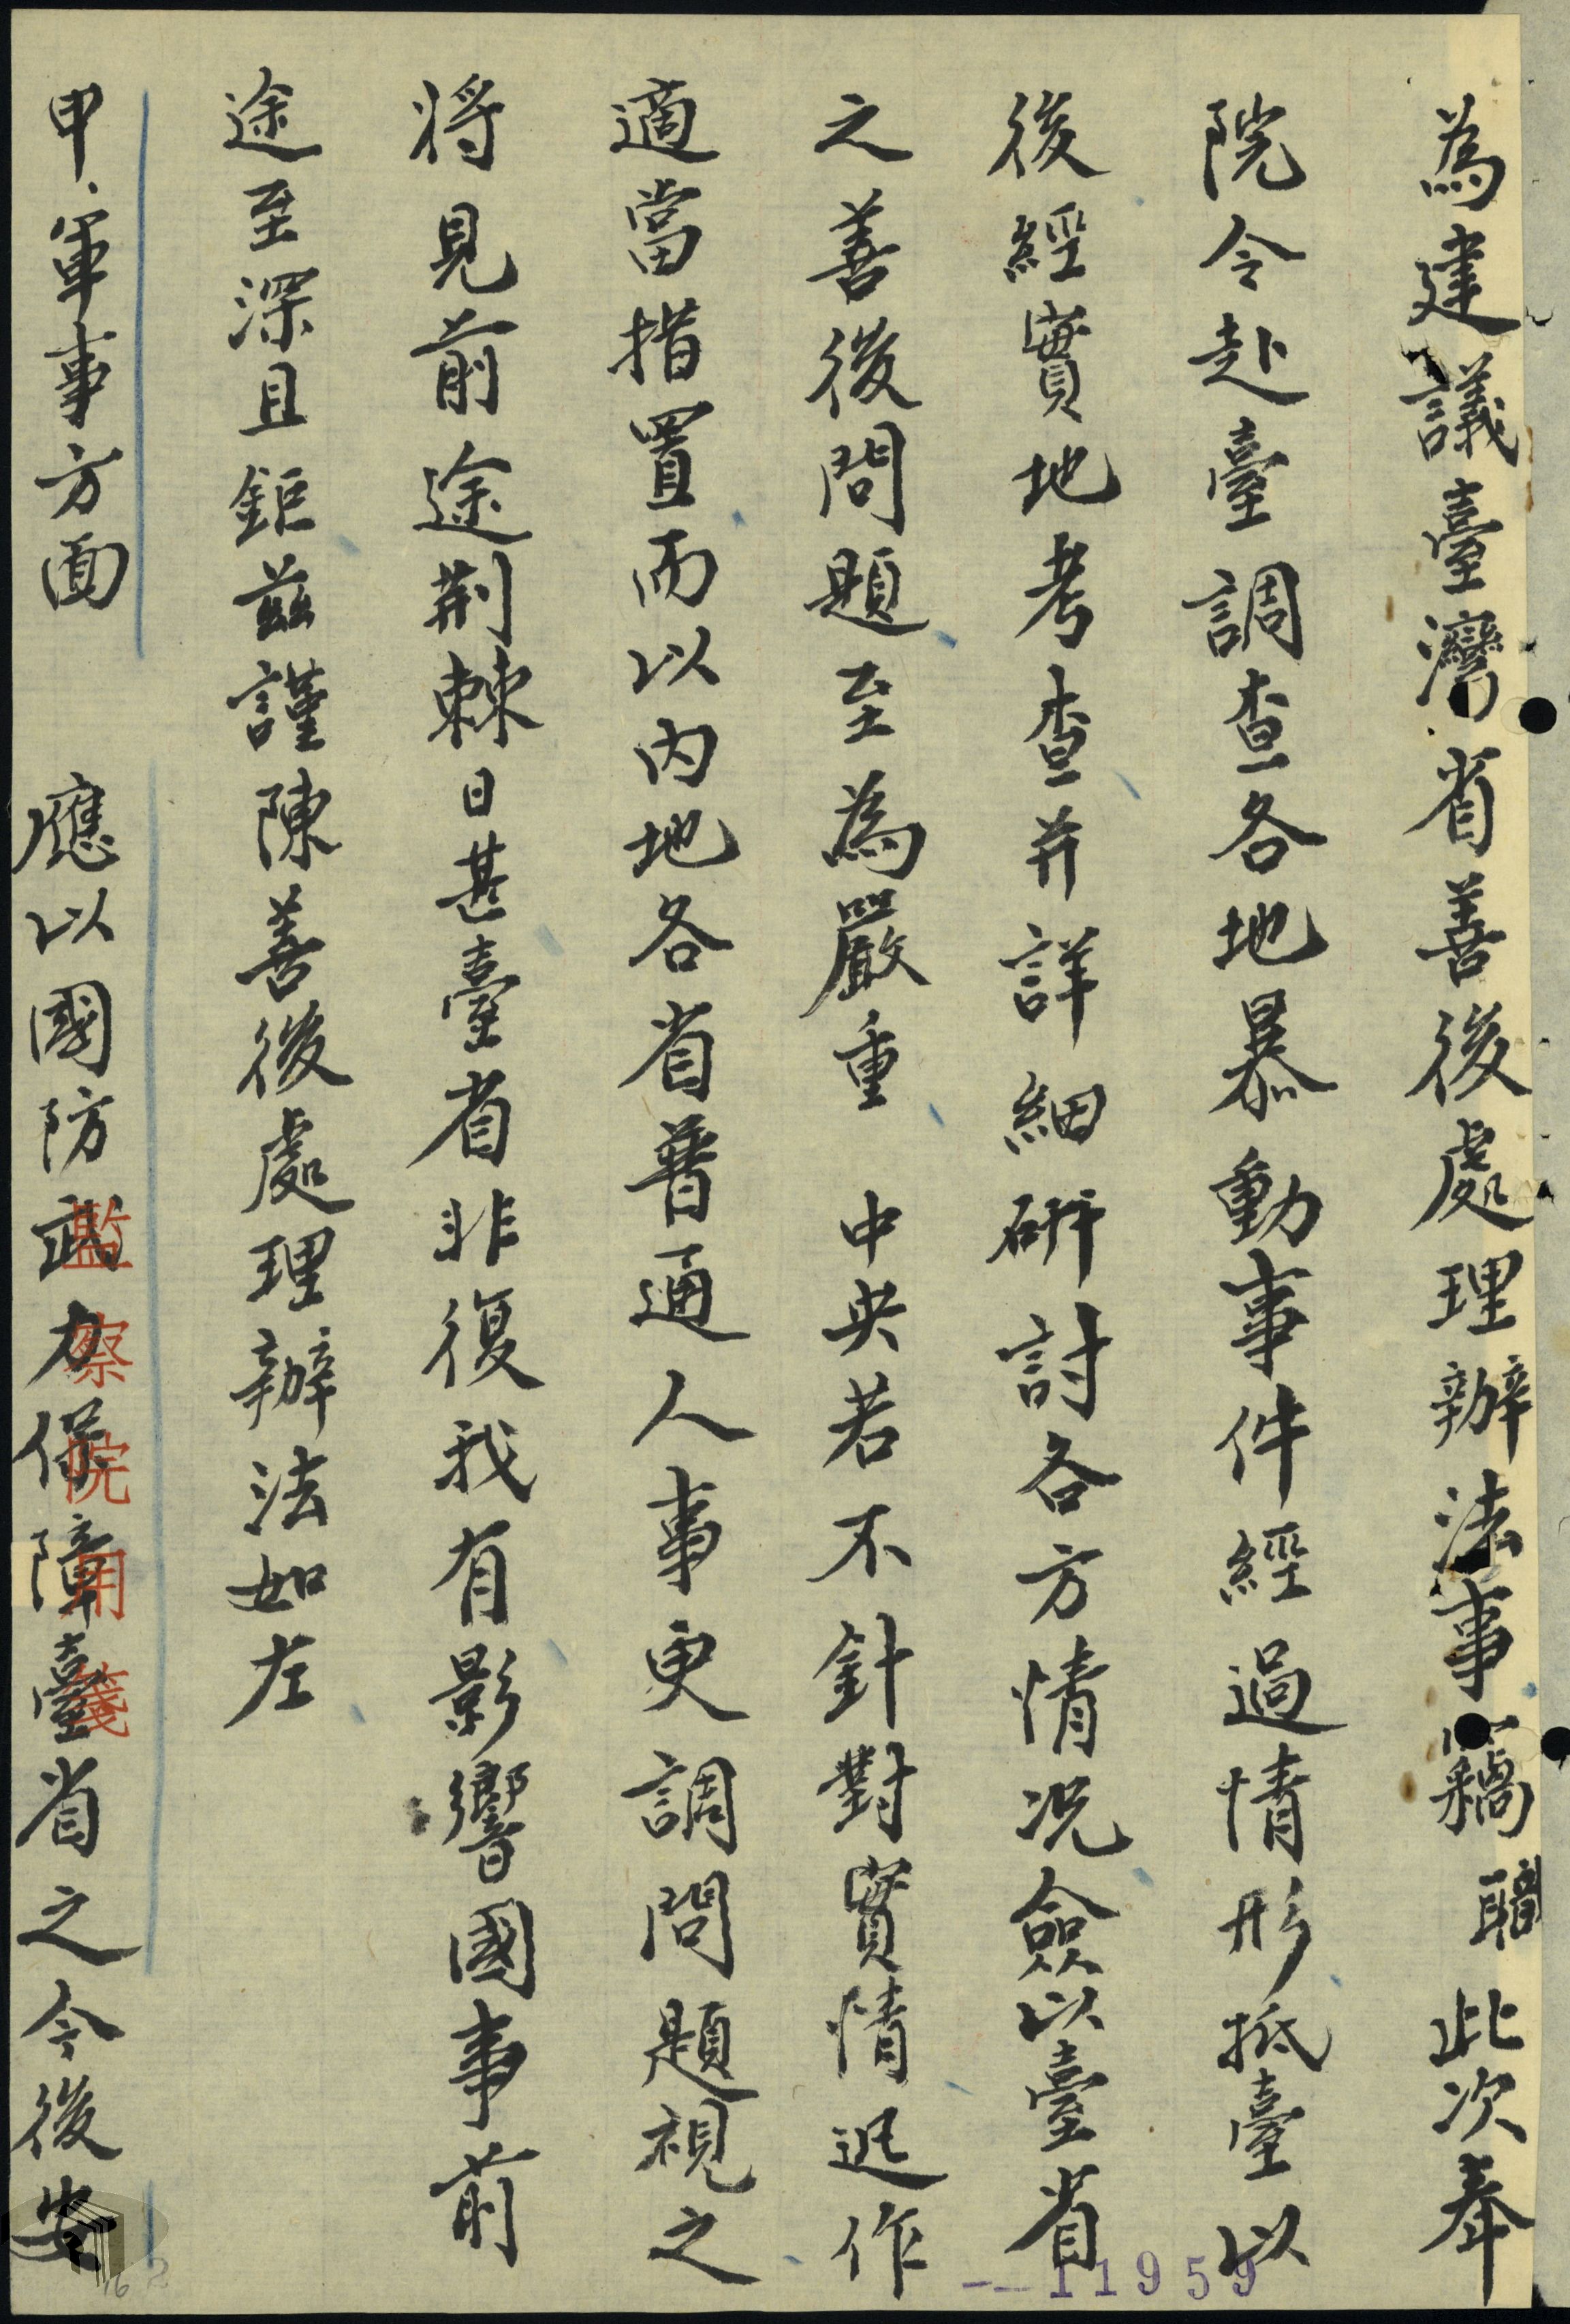 為建議臺灣省善後處理辦法事竊職此次奉
院令赴臺調查各地暴動事件經過情形抵臺以
後經實地考查并詳細研討各方情況僉以臺省
之善後問題至為嚴重 中央若不針對實情迅作
適當措置而以內地各省普通人事更調問題視之
将見前途荆棘日甚臺省非復我有影響國事前
途至深且鉅茲謹陳善後處理辦法如左
甲、軍事方面 應以國防武力保障臺省之今後安
監察院用箋
11959